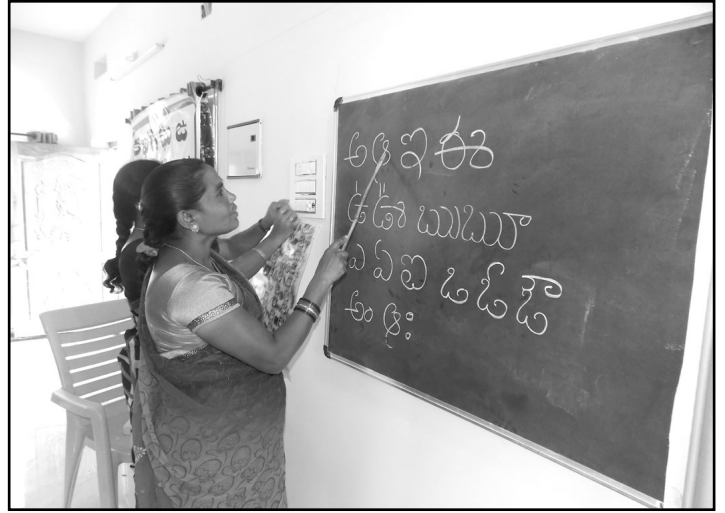 అ ఆ ఇ ఈ
ఉ ఊ ఋ ౠ
ఎ ఏ ఐ ఒ ఓ ఔ
అం అః